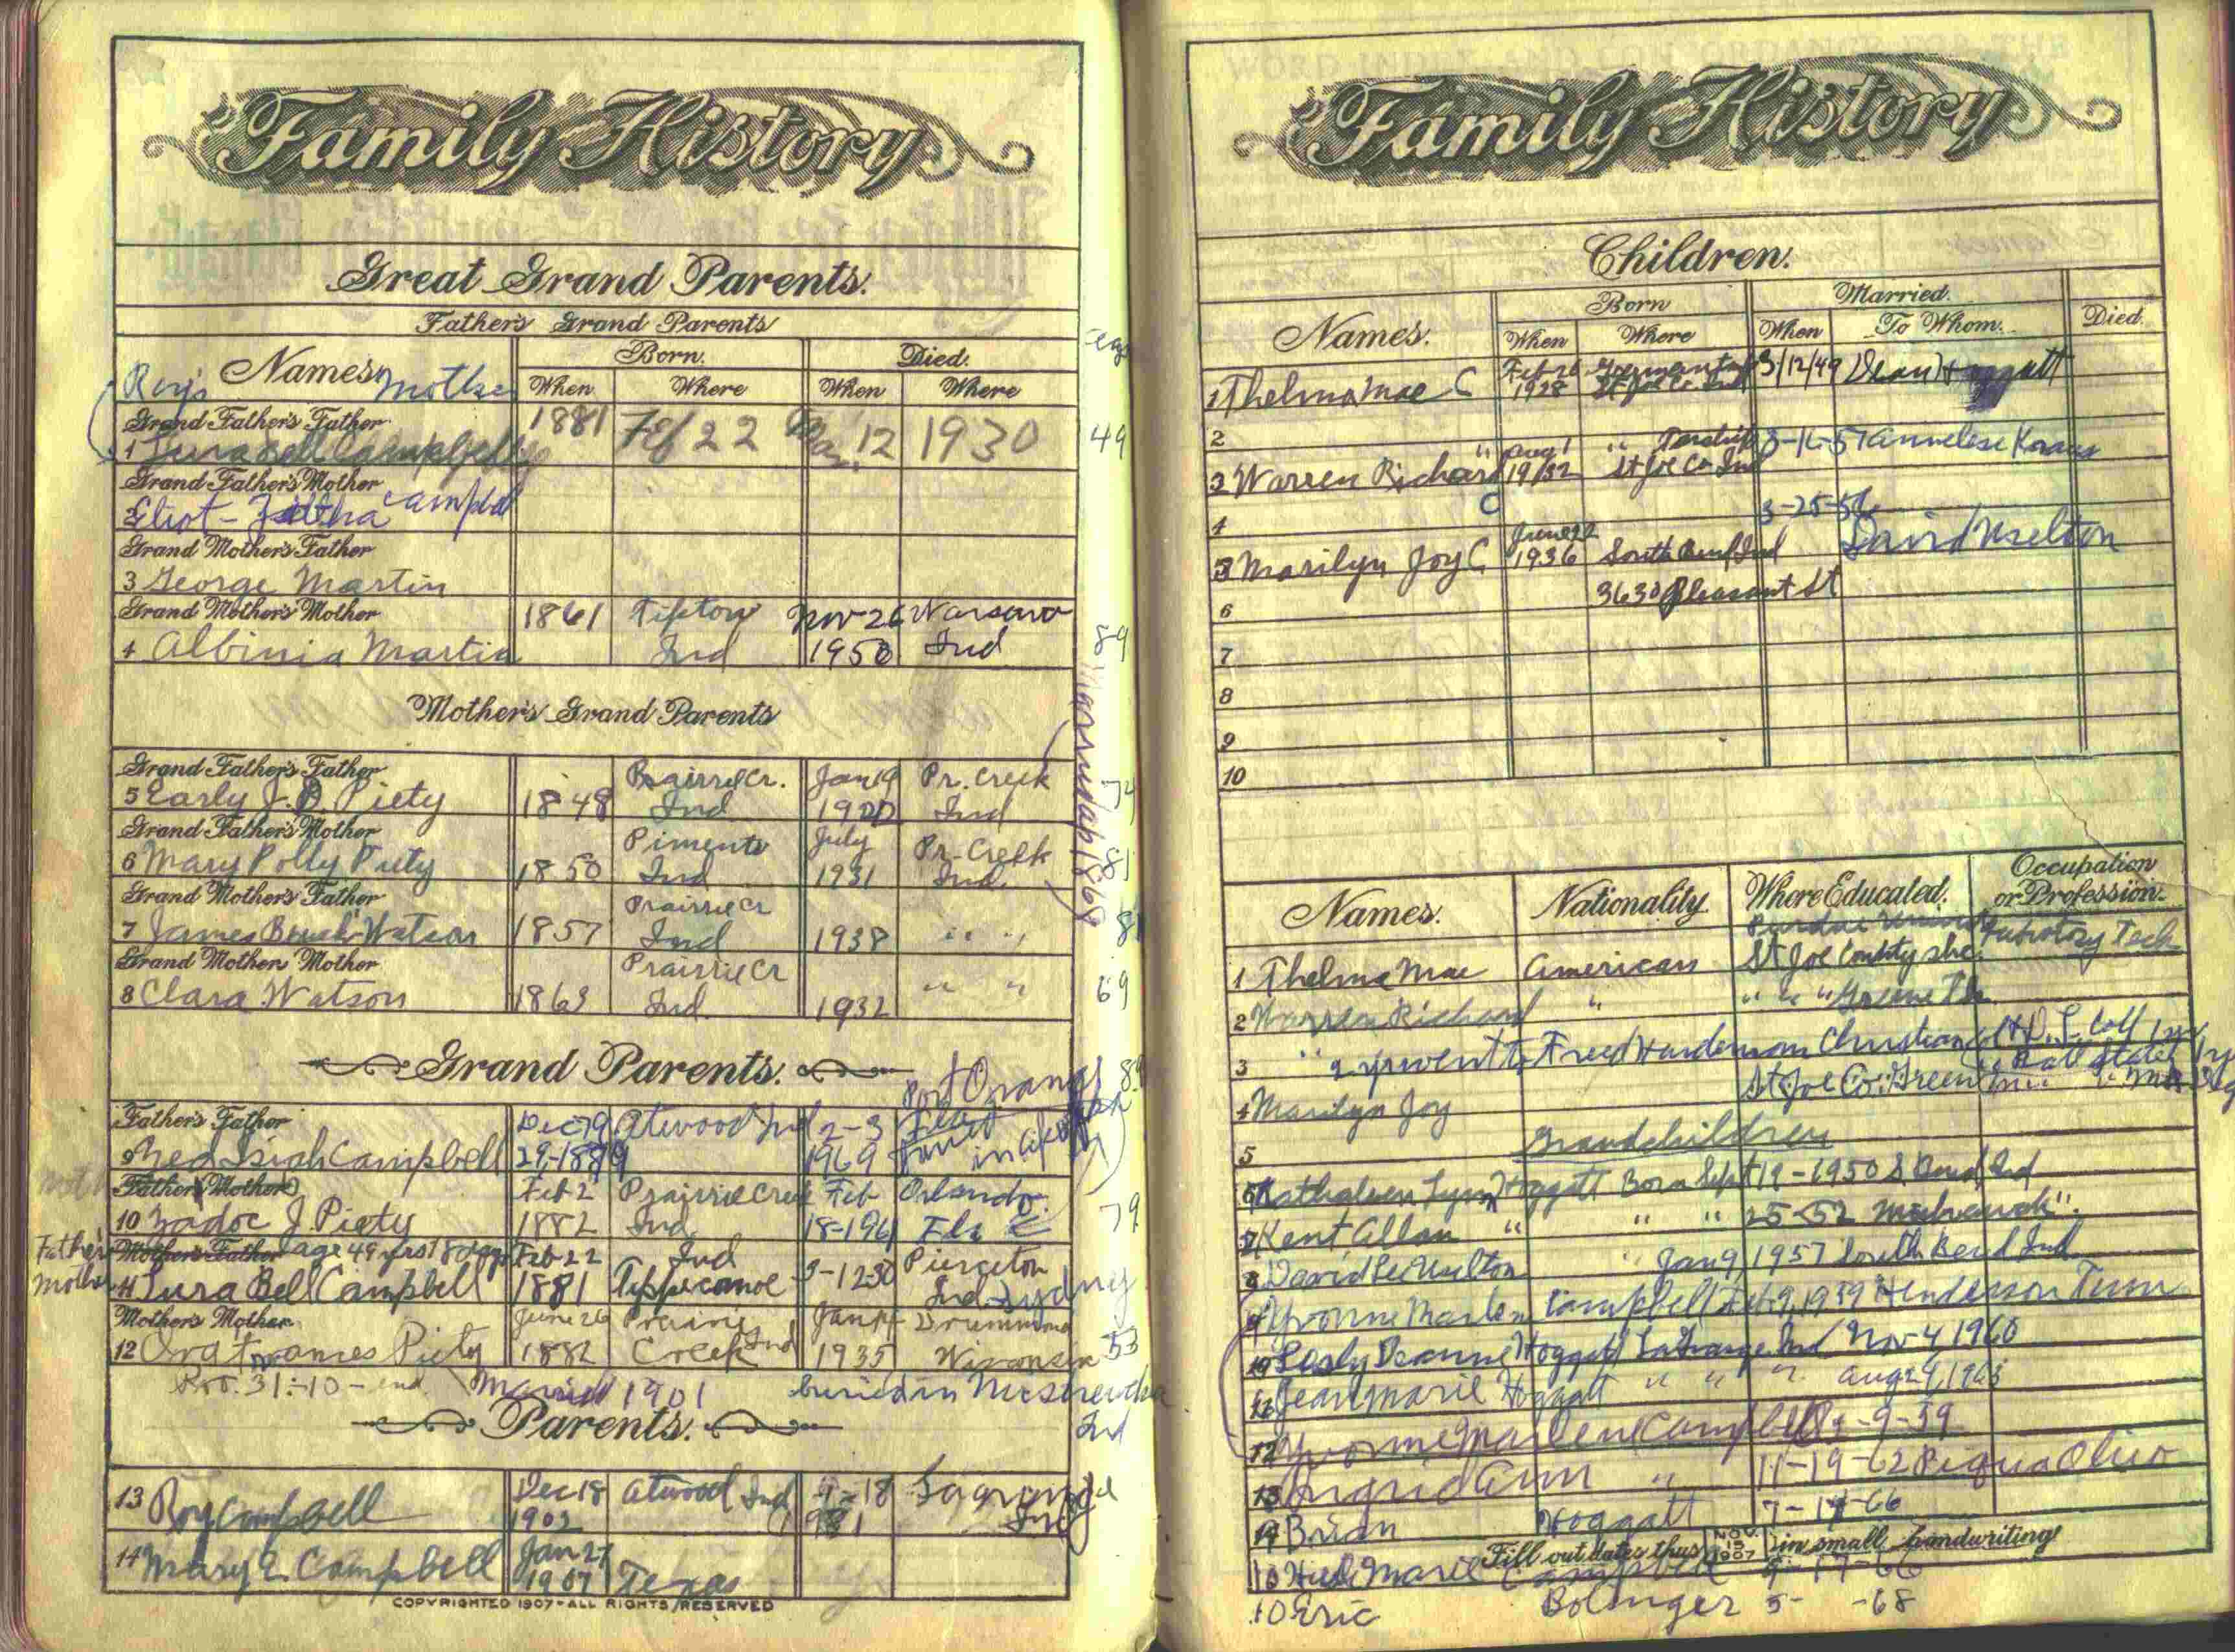 Family History
Great Grand Parents.
Father's Grand Parents
Names. Born. Died.
Roy's Mother When Where When Where
Grand Father's Father 1881 Feb 22 12 1930 49
1 Lura Bell Campbell
Grand Father's Mother
2 Eliot - Campbell
Grand Mother's Father
3 George Martin
Grand Mother's Mother 1861 Tipton Nov 26 Warsaw
4 Albinia Martin Ind 1950 Ind 89
Mother's Grand Parents
Grand Father's Father Prairie Cr. Jan 19 Pr. Creek
5 Early J. D. Piety 1848 Ind Ind
Grand Father's Mother Pimento July Pr. Creek
6 Mary Polly Piety 1850 Ind 1931 Ind. 81
Grand Mother's Father Prairrie Cr
7 James Watson 1857 Ind 1938 " " 81
Grand Mother's Mother Prairrie Cr
8 Clara Watson 1863 Ind. 1932 " " 69
Married 1868
Grand Parents.
Port Orange
Father's Father Dec Atwood Ind 2-3 Fla
9 Isiah Campbell 29-1889 1969
Father's Mother Feb 2 Prairrie Creek Feb Orlando
10 Zadoc J. Piety 1882 Ind 18-1961 Fla 79
Father's Mother's Father age 49 yrs 18 days Feb 22 Ind Pierceton
Mother 11 Lura Bell Campbell 1881 Tippecanoe 3-12-30 Ind. Sydney
Mother's Mother June 26 Prairie Jan Drummond
12 Ora Frances Piety 1882 Creek Ind 1935 Wisconsin 53
Pro. 31:-10-end Married 1901 buried in
Ind
Parents.
13 Roy Campbell Dec 18 Atwood Ind 4-18
1902 1981 Ind
14 Mary E. Campbell Jan 27
1907 Texas
COPYRIGHTED 1907-ALL RIGHTS RESERVED
Family History
Children.
Names. Born Married. Died.
When Where When To Whom.
1 Thelma Mae C Feb 26 German Twp 3/12/49 Dean Hoggatt
1928 St Joe Co Ind
2
3 Warren Richard " Aug 1 " Township 3-16-57 Annelese Kraus
C 1932 St Joe Co Ind
4 3-25-56
5 Marilyn Joy C June 22 South Bend Ind David Uselton
1936
6 3630 Pleasant St
7
8
9
10
Names. Nationality. Where Educated. Occupation or Profession.
Purdue
1 Thelma Mae American St Joe County Tech
2 Warren Richard " " " " Greene
3 " 2 yr went to Freed Hardeman Christian Col
St. Joe Co. Green
4 Marilyn Joy
5 Grandchildren
6 Kathaleen Lynn Hoggatt Born Sept 19-1950 S. Bend Ind
7 Kent Allan " " " 25-52
8 David Lee Uselton " Jan 9, 1957 South Bend Ind
9 Yvonne Marlene Campbell Feb. 9, 1959 Henderson Tenn
10 Lesly Deanne Hoggatt LaGrange Ind Nov 4, 1960
11 Jean Marie Hoggatt " " " Aug 29, 1963
12 Yvonne Marlene Campbell -9-59
13 Ingrid Ann " 11-19-62 Piqua Ohio
14 Brian Hoggatt 7-14-66
Fill out dates thus NOV. 15 1907 in small handwriting
Marie Campbell -17-66
10 Eric Bolinger 5- -68